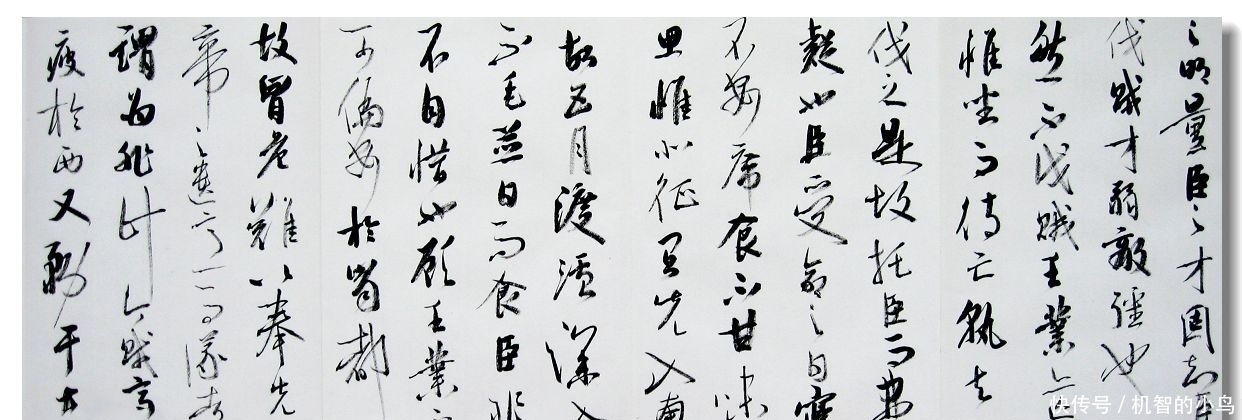 之明量臣之才固知
伐賊才弱敵彊也
然不伐賊王業亦
惟坐而待亡孰与
伐之是故托臣而弗
疑也臣受命之日寝
不安席食不甘味
思惟北征宜先入南
故五月渡瀘深入
不毛並日而食臣非
不自惜也顧王業不
可偏安於蜀都
故冒危難以奉先
帝之遺意而議者
謂為非計今賊
疲於西又務于
快传号 / 机智的小鸟